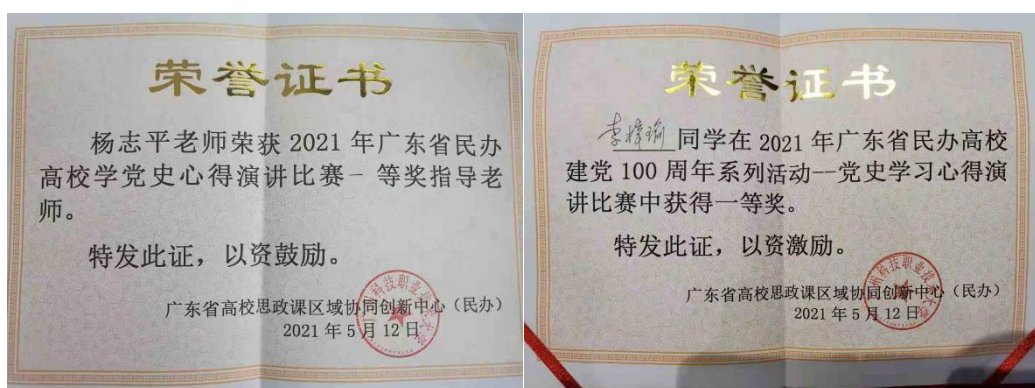 荣誉证书
杨志平老师荣获 2021 年广东省民办
高校学党史心得演讲比赛一等奖指导老
师。
特发此证，以资鼓励。
广东省高校思政课区域协同创新中心（民办）
2021 年 5 月 12 日
荣誉证书
李梓瑜 同学在 2021 年广东省民办高校
建党 100 周年系列活动--党史学习心得演
讲比赛中获得一等奖。
特发此证，以资激励。
广东省高校思政课区域协同创新中心（民办）
2021 年 5 月 12 日